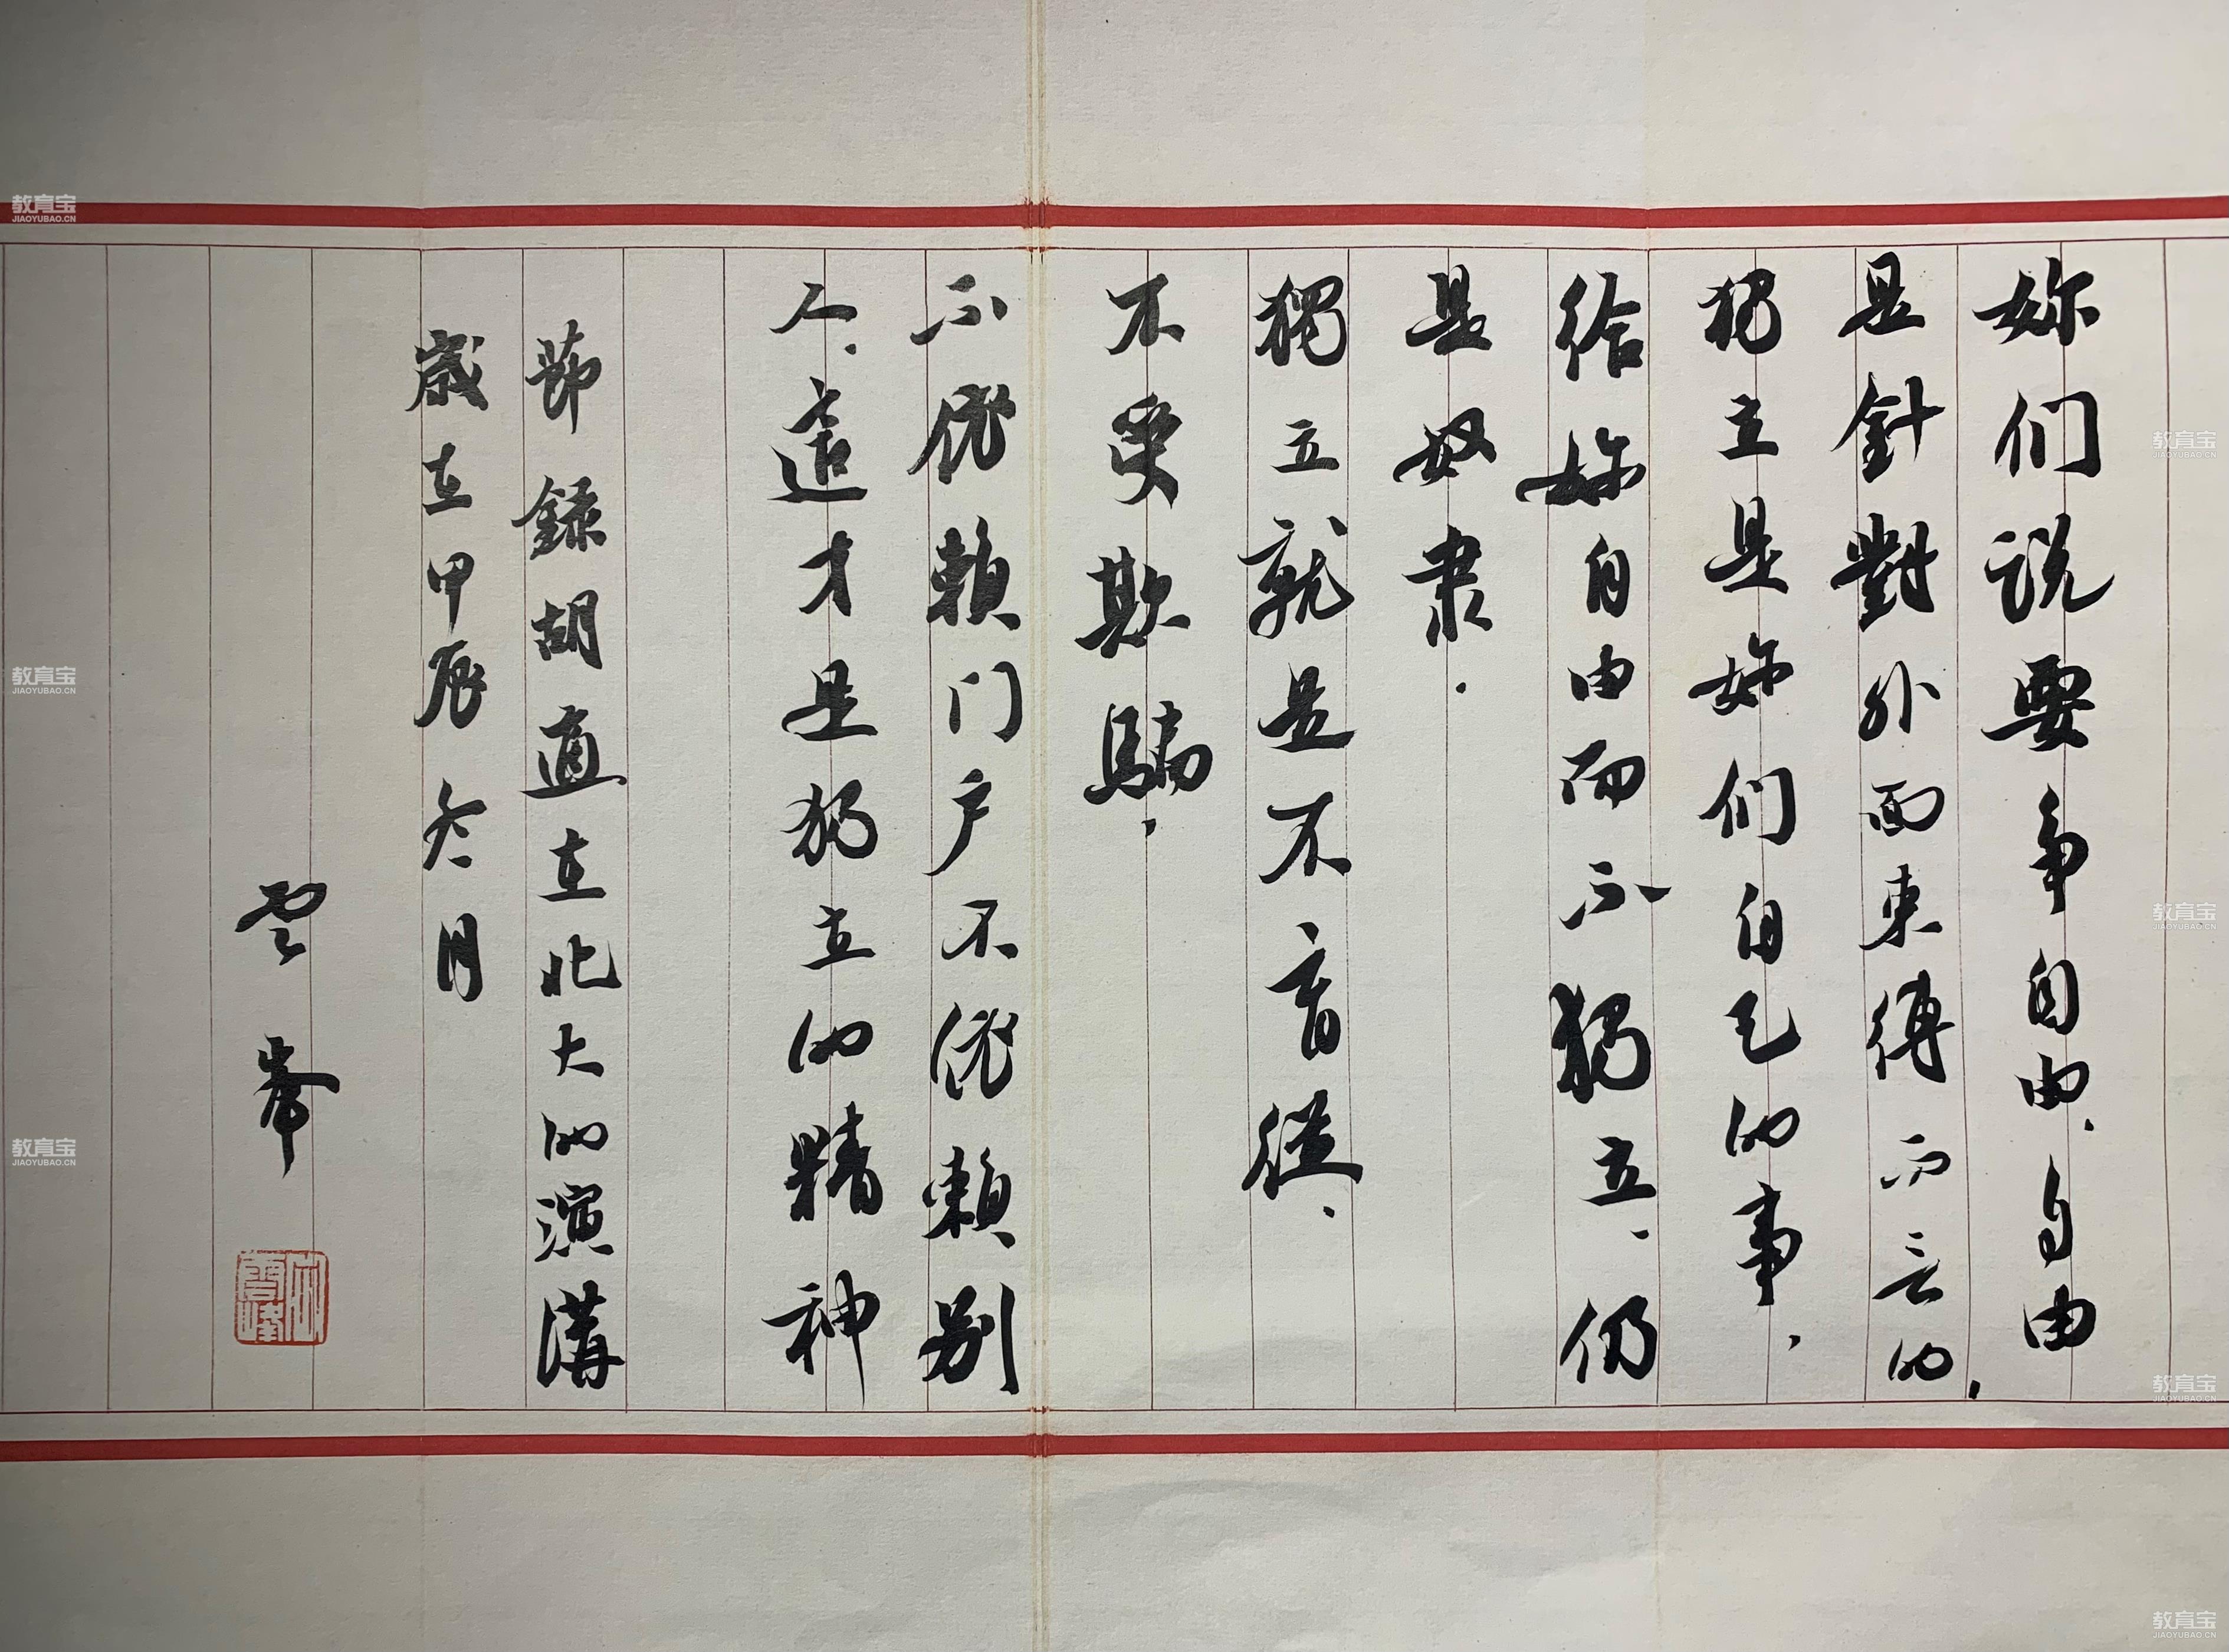 妳们说要争自由.自由
是針對外面束缚而言的,
獨立是妳们自己的事,
给妳自由而不獨立、仍
是奴隶.
獨立就是不盲從.
不受欺騙,
不依賴门户不依賴别
人.這才是独立的精神
節録胡適在北大的演講
歲在甲辰冬月
雲峯
教育宝
JIAOYUBAO.CN
教育宝
JIAOYUBAO.CN
教育宝
JIAOYUBAO.CN
教育宝
JIAOYUBAO.CN
教育宝
JIAOYUBAO.CN
教育宝
JIAOYUBAO.CN
教育宝
JIAOYUBAO.CN